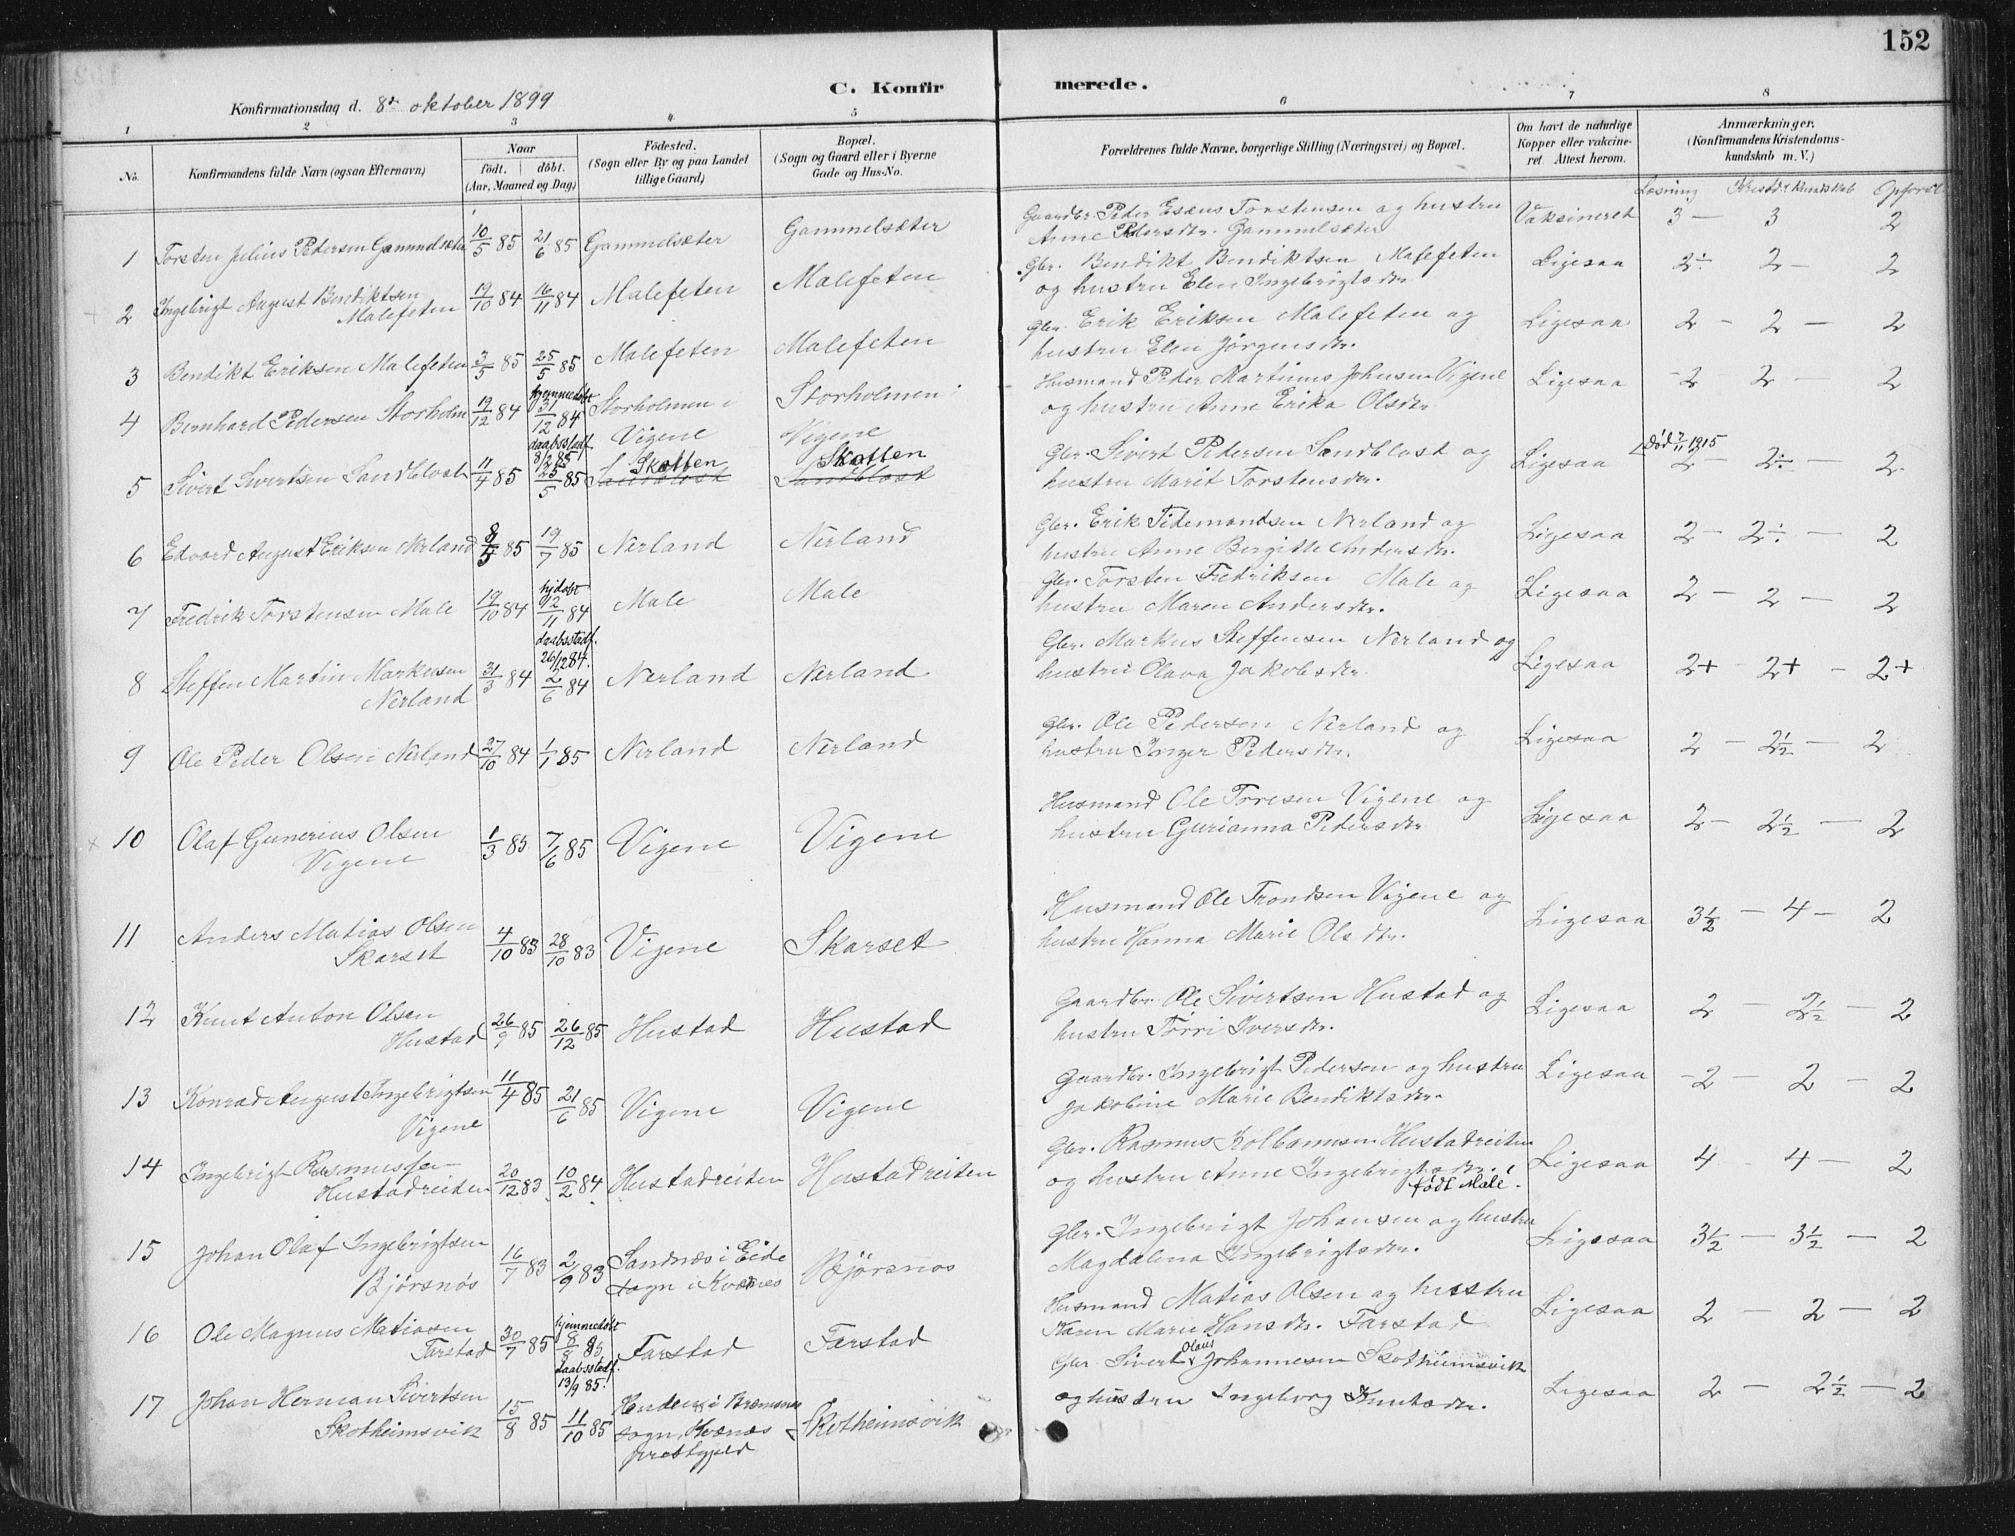 152
C. Konfirmerede.
Konfirmationsdag d. 8de oktober 1899
1 2 3 4 5 6 7 8
No. Konfirmandens fulde Navn (ogsaa Efternavn) Naar født. døbt. (Aar, Maaned og Dag) Fødested. (Sogn eller By og paa Landet tillige Gaard) Bopæl. (Sogn og Gaard eller i Byerne Gade og Hus-No. Forældrenes fulde Navne, borgerlige Stilling (Næringsvei) og Bopæl. Om havt de naturlige Kopper eller vakcineret. Attest herom. Anmærkninger. (Konfirmandens Kristendomskundskab m. V.)
Læsning Kristd. Kundskab Opførsel
1 Torsten Julius Pedersen Gammelsæter 10/5 85 21/6 85 Gammelsæter Gammelsæter Gaardbr. Peder Esæus Torstensen og hustru Vaksineret 3 — 3 2
Anne Pedersdtr. Gammelsæter
2 Ingebrigt August Bendiktsen 19/10 84 16/11 84 Malefeten Malefeten Gbr. Bendikt Bendiktsen Malefeten Ligesaa 2÷ 2 — 2
Malefeten og hustru Elen Ingebrigtsdtr.
3 Bendikt Eriksen Malefeten 3/5 85 25/5 85 Malefeten Malefeten Gbr. Erik Eriksen Malefeten og Ligesaa 2 — 2 — 2
hustru Elen Jørgensdtr.
4 Bernhard Pedersen Storholm 19/12 84 hjemmedøbt 31/12 84 Storholmen i Storholmen i Husmand Peder Martinus Johnsen Vigene Ligesaa 2 2 — 2
daabsstadf. 8/2 85 Vigene Vigene og hustru Anne Erika Olsdtr.
5 Sivert Sivertsen Sandblost 11/4 85 25/5 85 Skotten Sandblost Skotten Sandblost Gbr. Sivert Pedersen Sandblost og Ligesaa Død 7/11 1915 2 — 2÷ — 2
hustru Marit Torstensdtr.
6 Edvard August Eriksen Nerland 8/5 85 19/7 85 Nerland Nerland Gbr. Erik Tidemandsen Nerland og Ligesaa 2 — 2÷ — 2
hustru Anne Bergitte Andersdtr.
7 Fredrik Torstensen Male 19/10 84 hjdøbt 9/11 84 Male Male Gbr. Torsten Fredriksen Male og Ligesaa 2 — 2 — 2
daabsstadf. 26/12 84. hustru Maren Andersdtr.
8 Steffen Martin Markusen 31/3 84 2/6 84 Nerland Nerland Gbr. Markus Steffensen Nerland og Ligesaa 2+ 2+ — 2+
Nerland hustru Olava Jakobsdtr.
9 Ole Peder Olsen Nerland 27/10 84 1/1 85 Nerland Nerland Gbr. Ole Pedersen Nerland og Ligesaa 2 — 2½ — 2
hustru Inger Pedersdtr.
10 Olaf Gunerius Olsen 1/3 85 7/6 85 Vigene Vigene Husmand Ole Toresen Vigene og Ligesaa 2 — 2½ — 2
Vigene hustru Gurianna Pedersdtr
11 Anders Matias Olsen 4/10 83 28/10 83 Vigene Skarset Husmand Ole Trondsen Vigene og Ligesaa 3½ — 4 — 2
Skarset hustru Hanna Marie Olsdtr.
12 Knut Anton Olsen 26/9 85 26/12 85 Hustad Hustad Gaardbr. Ole Sivertsen Hustad og Ligesaa 2 — 2½ — 2
Hustad hustru Tørri Iversdtr.
13 Konrad August Ingebrigtsen 11/4 85 21/6 85 Vigene Vigene Gaardbr. Ingebrigt Pedersen og hustru Ligesaa 2 — 2 — 2
Vigene Jakobine Marie Bendiktsdtr.
14 Ingebrigt Rasmussen 20/12 83 10/2 84 Hustadreiten Hustadreiten Gbr. Rasmus Kolbannsen Hustadreiten Ligesaa 4 4 — 2
Hustadreiten og hustru Anne Ingebrigtsdtr.
født Male!
15 Johan Olaf Ingebrigtsen 16/7 83 2/9 83 Sandnæs i Eide Bjørsnos Gbr. Ingebrigt Johansen og hustru Ligesaa 3½ — 3½ — 2
Bjørsnøs sogn i Kvernes Magdalena Ingebrigtsdtr.
16 Ole Magnus Matiasen 30/7 85 hjemmedøbt 8/8 85 Farstad Farstad Husmand Matias Olsen og hustru Ligesaa 2 — 2 — 2
Farstad daabsstadf. 13/9 85! Karen Marie Hansdtr. Farstad
17 Johan Herman Sivertsen 15/8 85 11/10 85 i Bremsnes Skotheimsvik Gbr. Sivert Olaus Johannesen Skotheimsvik Ligesaa 2 — 2½ — 2
Skotheimsvik sogn, Kvernes og hustru Ingeborg Knutsdtr.
prestegjeld